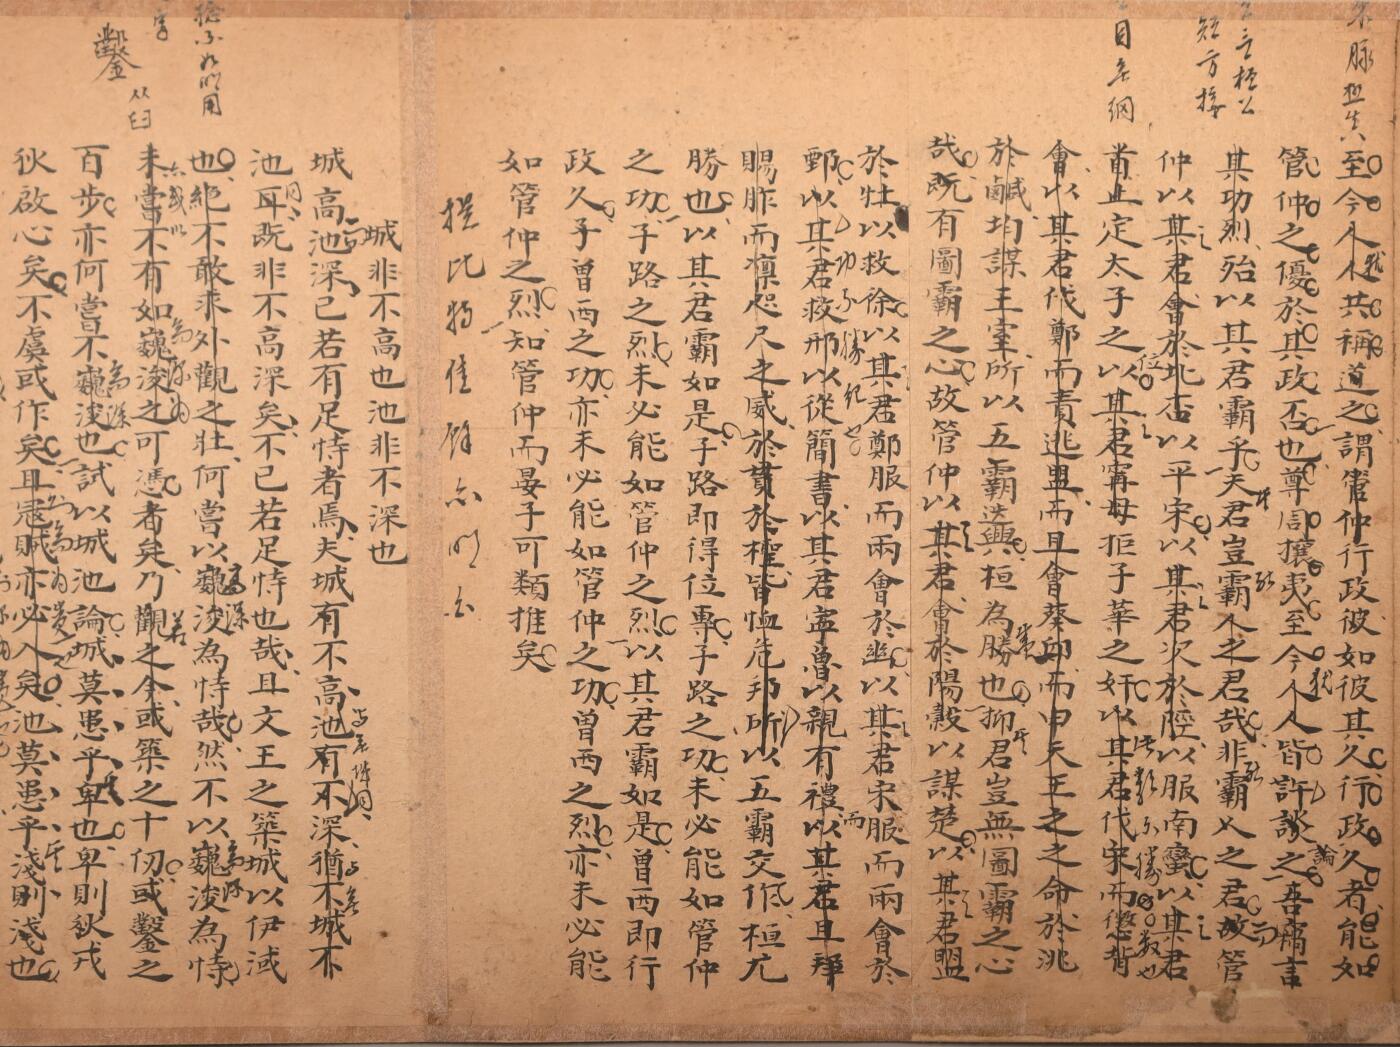 至今人人共稱道之謂管仲行政彼如彼其久行政久者能如
管仲之優於其政否也尊周攘夷至今人人皆許談之吾竊言
其功烈殆以其君霸乎夫君豈霸人之君哉非霸人之君故管
仲以其君會於北杏以平宋以其君次於陘以服南蠻以其君
首止定太子之以其君甯母拒子華之奸以其君伐宋而懲背
會以其君伐鄭而責逃盟而且會葵邱而申天王之命於洮
於鹹均謀王室所以五霸迭興桓為勝也抑君豈無圖霸之心
哉既有圖霸之心故管仲以其君會於陽穀以謀楚以其君盟
於牡以救徐以其君鄭服而兩會於幽以其君宋服而兩會於
鄄以其君救邢以從簡書以其君寧魯以親有禮以其君且拜
賜胙而凜咫尺之威於貫於檉皆恤危邦所以五霸交作桓尤
勝也以其君霸如是子路即得位專子路之功未必能如管仲
之功子路之烈未必能如管仲之烈以其君霸如是曾西即行
政久予曾西之功亦未必能如管仲之功曾西之烈亦未必能
如管仲之烈知管仲而晏子可類推矣
提比特佳餘亦明白
城非不高也池非不深也
城高池深已若有足恃者焉夫城有不高池有不深猶不城不
池耳既非不高深矣不已若足恃也哉且文王之築城以伊淢
也絕不敢乘外觀之壯何嘗以巍浚為恃哉然不以巍浚為恃
未嘗不有如巍浚之可憑者矣乃觀之今或築之十仞或鑿之
百步亦何嘗不巍浚也試以城池論城莫患乎卑也卑則狄戎
狄啟心矣不虞或作矣且寇賊亦必入矣池莫患乎淺則淺也
鑿
从臼
目無綱